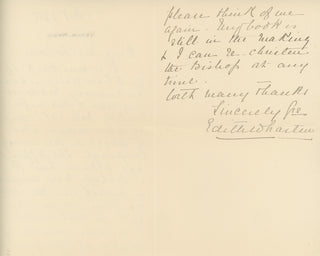 please think of me
again. My book is
still in the making
& I can re-christen
the Bishop at any
time. —
With many thanks
Sincerely Yrs
Edith Wharton